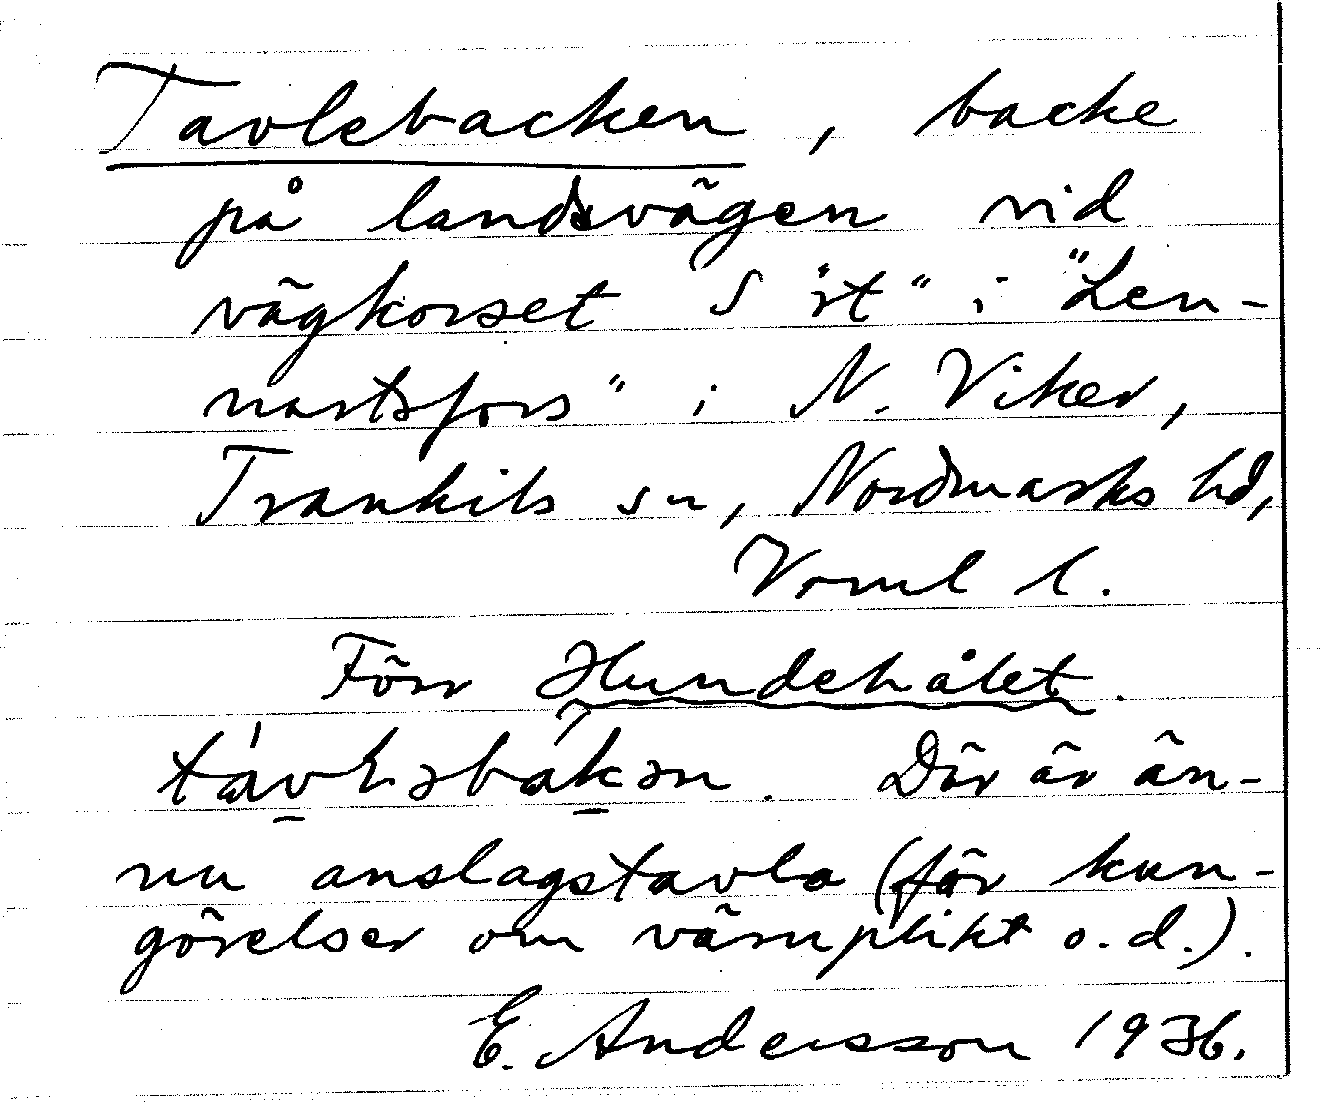 Tavlebacken, backe
på landsvägen vid
vägkorset S "rt" i "Len-
nartsfors" i N. Viker,
Trankils sn, Nordmarks hd,
Vrml l.
Förr Hundehålet.
Där är än-
nu anslagstavla (för kun-
görelser om värnplikt o.d.).
E. Andersson 1936.